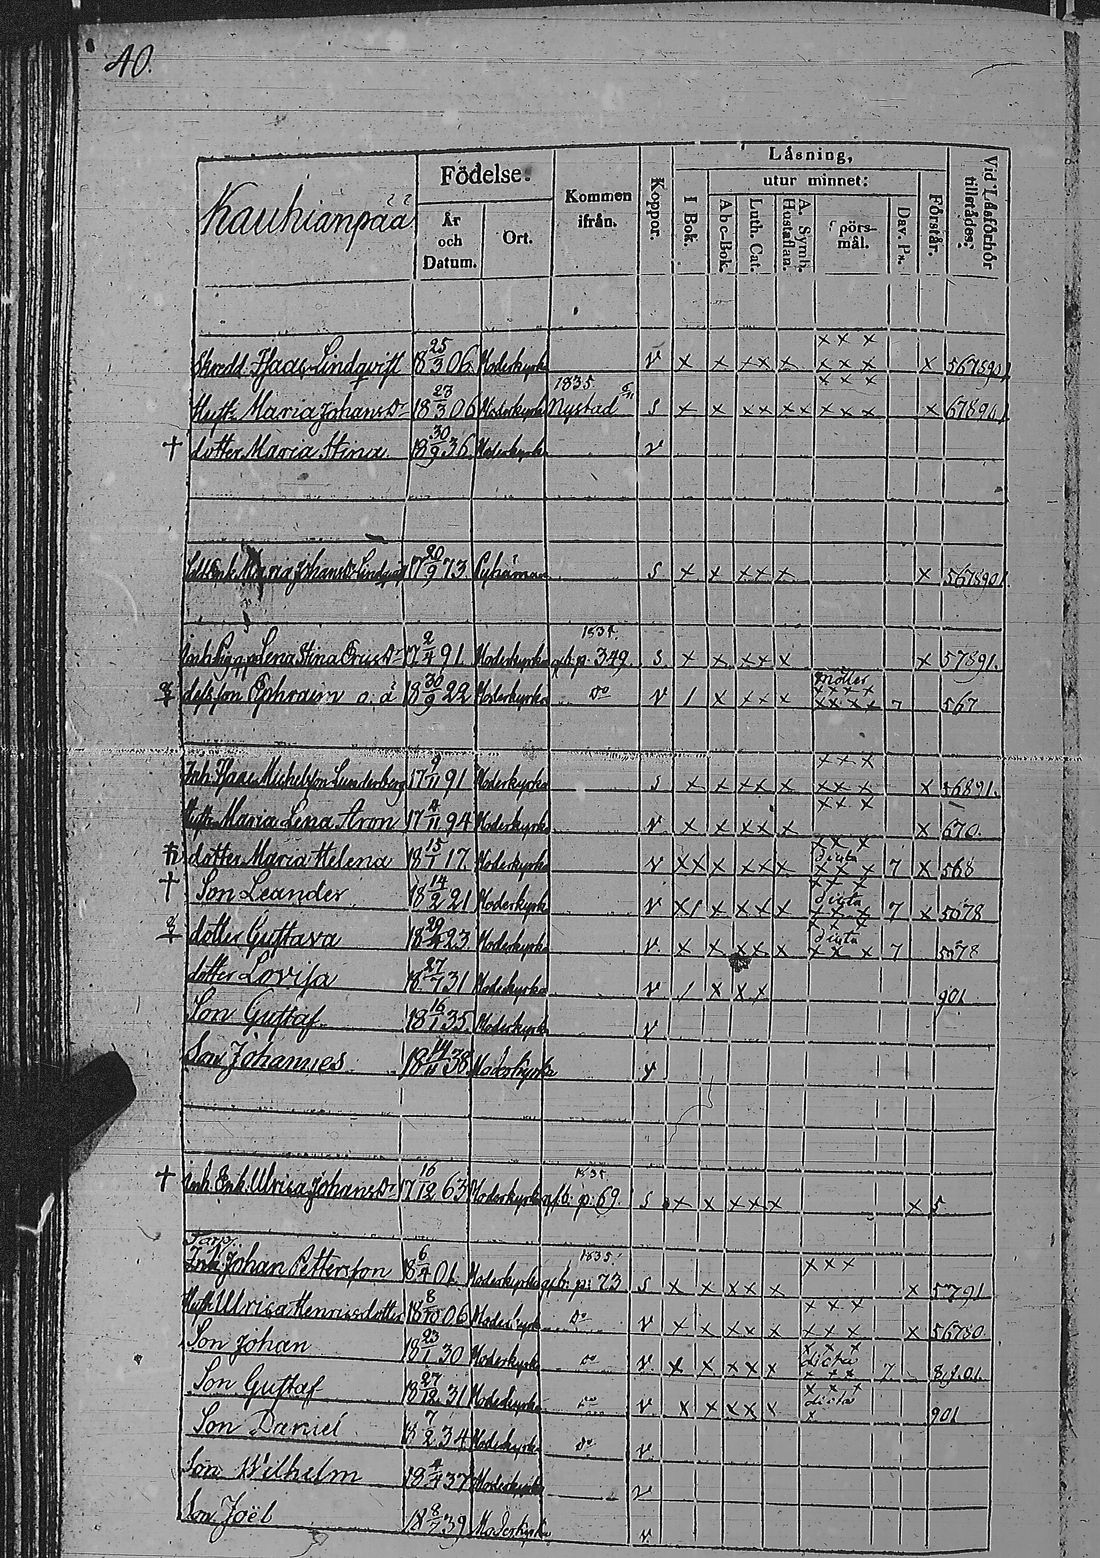 40.
Kauhianpää
Födelse:
År och Datum.
Ort.
Kommen ifrån.
Koppor.
Läsning,
I Bok.
utur minnet:
Abc-Bok.
Luth. Cat.
A. Symb. Hustaflan.
Spörsmål.
Dav. Ps.
Förstår.
Vid Läsförhör tillstädes:
x x x
Skredd. Isaac Lindqvist 18 25/3 06. Moderkyrka v x x xx x x x x x 567890
x x x
Hustr. Maria Johansdr 18 23/3 06 Moderkyrka 1835 Nystad s x x xx xx x x x x
† dotter Maria Stina 18 30/9 36 Moderkyrka v
Maria Johansdr 17 20/9 73 Pyhämaa s x x xx x x 567890
Lena Stina 17 2/4 91. Moderkyrka 1834. p. 349. s. x x xx x x 57891.
Ephraim o. ä 18 30/9 22 Moderkyrka Do v / x xx x 7 567
x x x
Inh. Isaac Michelsson Lunderberg 17 9/11 91 Moderkyrka s x x xx x x x x x 6891.
x x x
Hustr. Maria Lena Aron 17 4/11 94 Moderkyrka v x x xx x x 670.
dotter Maria Helena 18 15/1 17. Moderkyrka v xx x xx x dicta x x x 7 x 568
† Son Leander 18 14/2 21 Moderkyrka v x/ x xx x dicta x x x 7 x 5678
dotter Gustava 18 29/4 23 Moderkyrka v x x xx x dicta x x x 7 5678
dotter Lovisa 18 27/7 31 Moderkyrka v / x x x 901
Son Gustaf 18 16/1 35. Moderkyrka v
Son Johannes 18 14/11 38 Moderkyrka v
† Inh. Enk. Ulrica Johansdr 17 16/12 63 Moderkyrka 1835. p. 69 s x x xx x x 5
Torp.
Johan Pettersson 18 6/4 01. Moderkyrka 1835. p: 73 s x x xx x x x x x 5791
Hustr. Ulrica Henricsdotter 18 8/10 06 Moderkyrka Do v x x xx x x x x x x x x 56780
Son Johan 18 23/1 30 Moderkyrka Do v x x xx x dicta x x x 7
Son Gustaf 18 27/12 31 Moderkyrka Do v x x xx x dicta x 901
Son Daniel 18 7/2 34 Moderkyrka Do v
Son Wilhelm 18 4/4 37 Moderkyrka v
Son Joël 18 8/7 39 Moderkyrka v